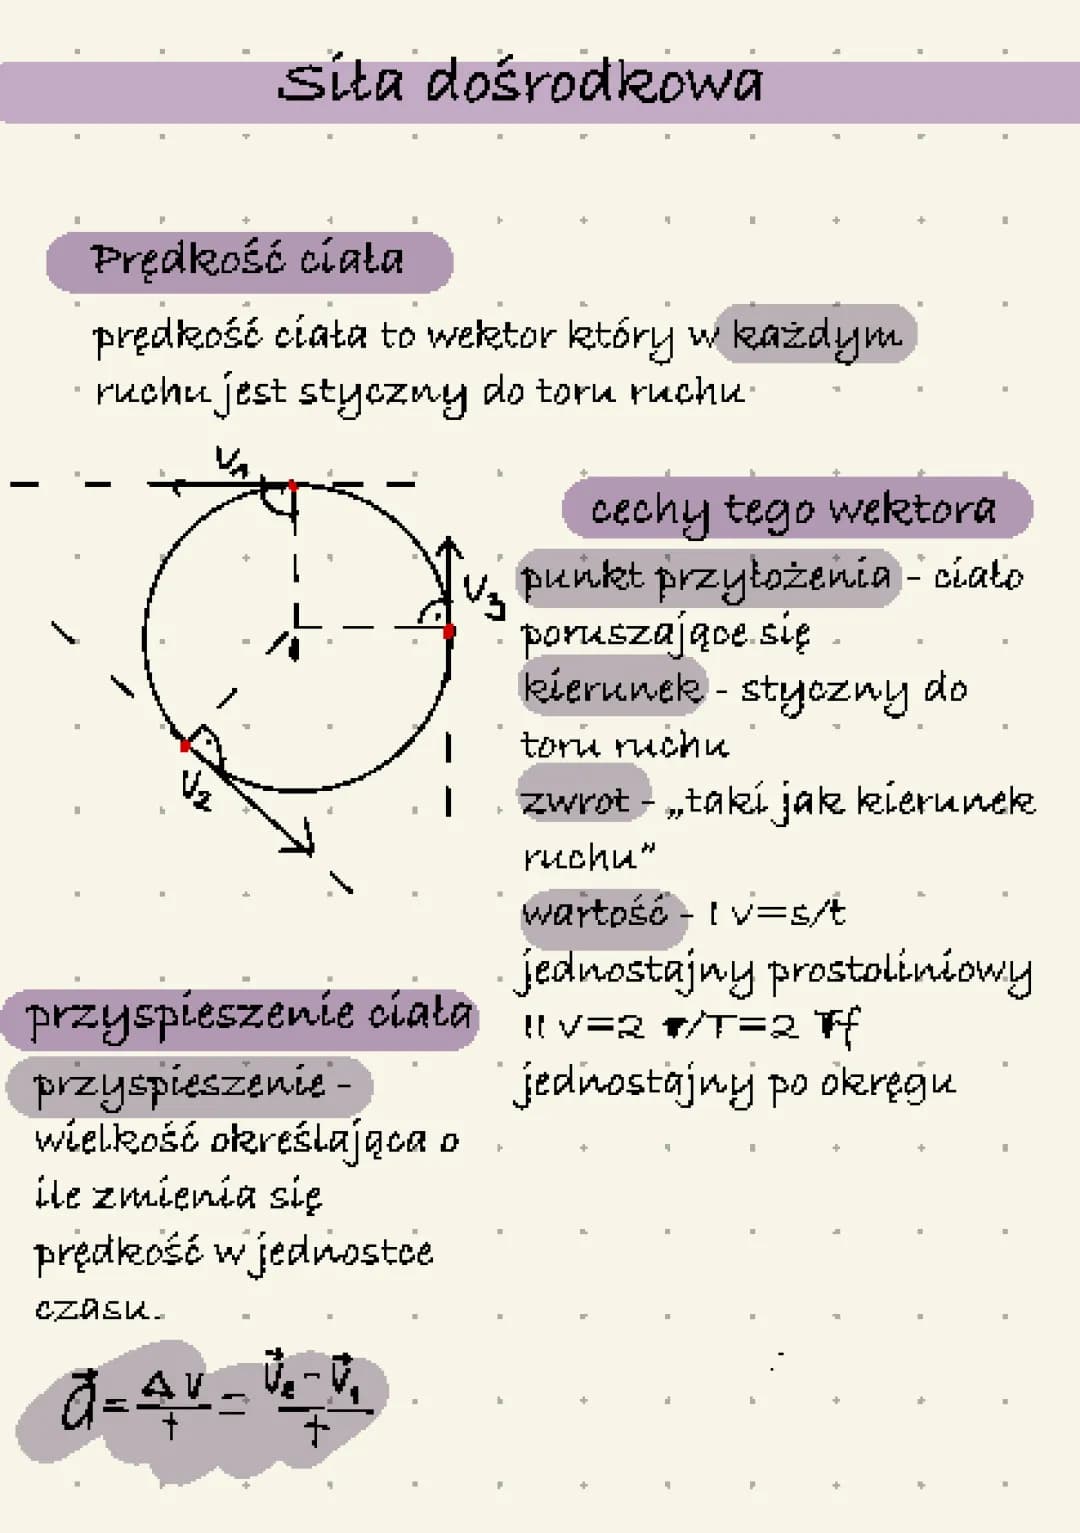 Siła dośrodkowa
Prędkość ciała
prędkość ciała to wektor który w każdym
ruchu jest styczny do toru ruchu
V₁
V₃
V₂
cechy tego wektora
punkt przyłożenia - ciało
poruszające się
kierunek - styczny do
toru ruchu
zwrot - „taki jak kierunek
ruchu”
wartość - I v=s/t
jednostajny prostoliniowy
II v=2 r/T=2 f
jednostajny po okręgu
przyspieszenie ciała
przyspieszenie -
wielkość określająca o
ile zmienia się
prędkość w jednostce
czasu.
a⃗ = Δv/t = (v⃗₂ - v⃗₁)/t